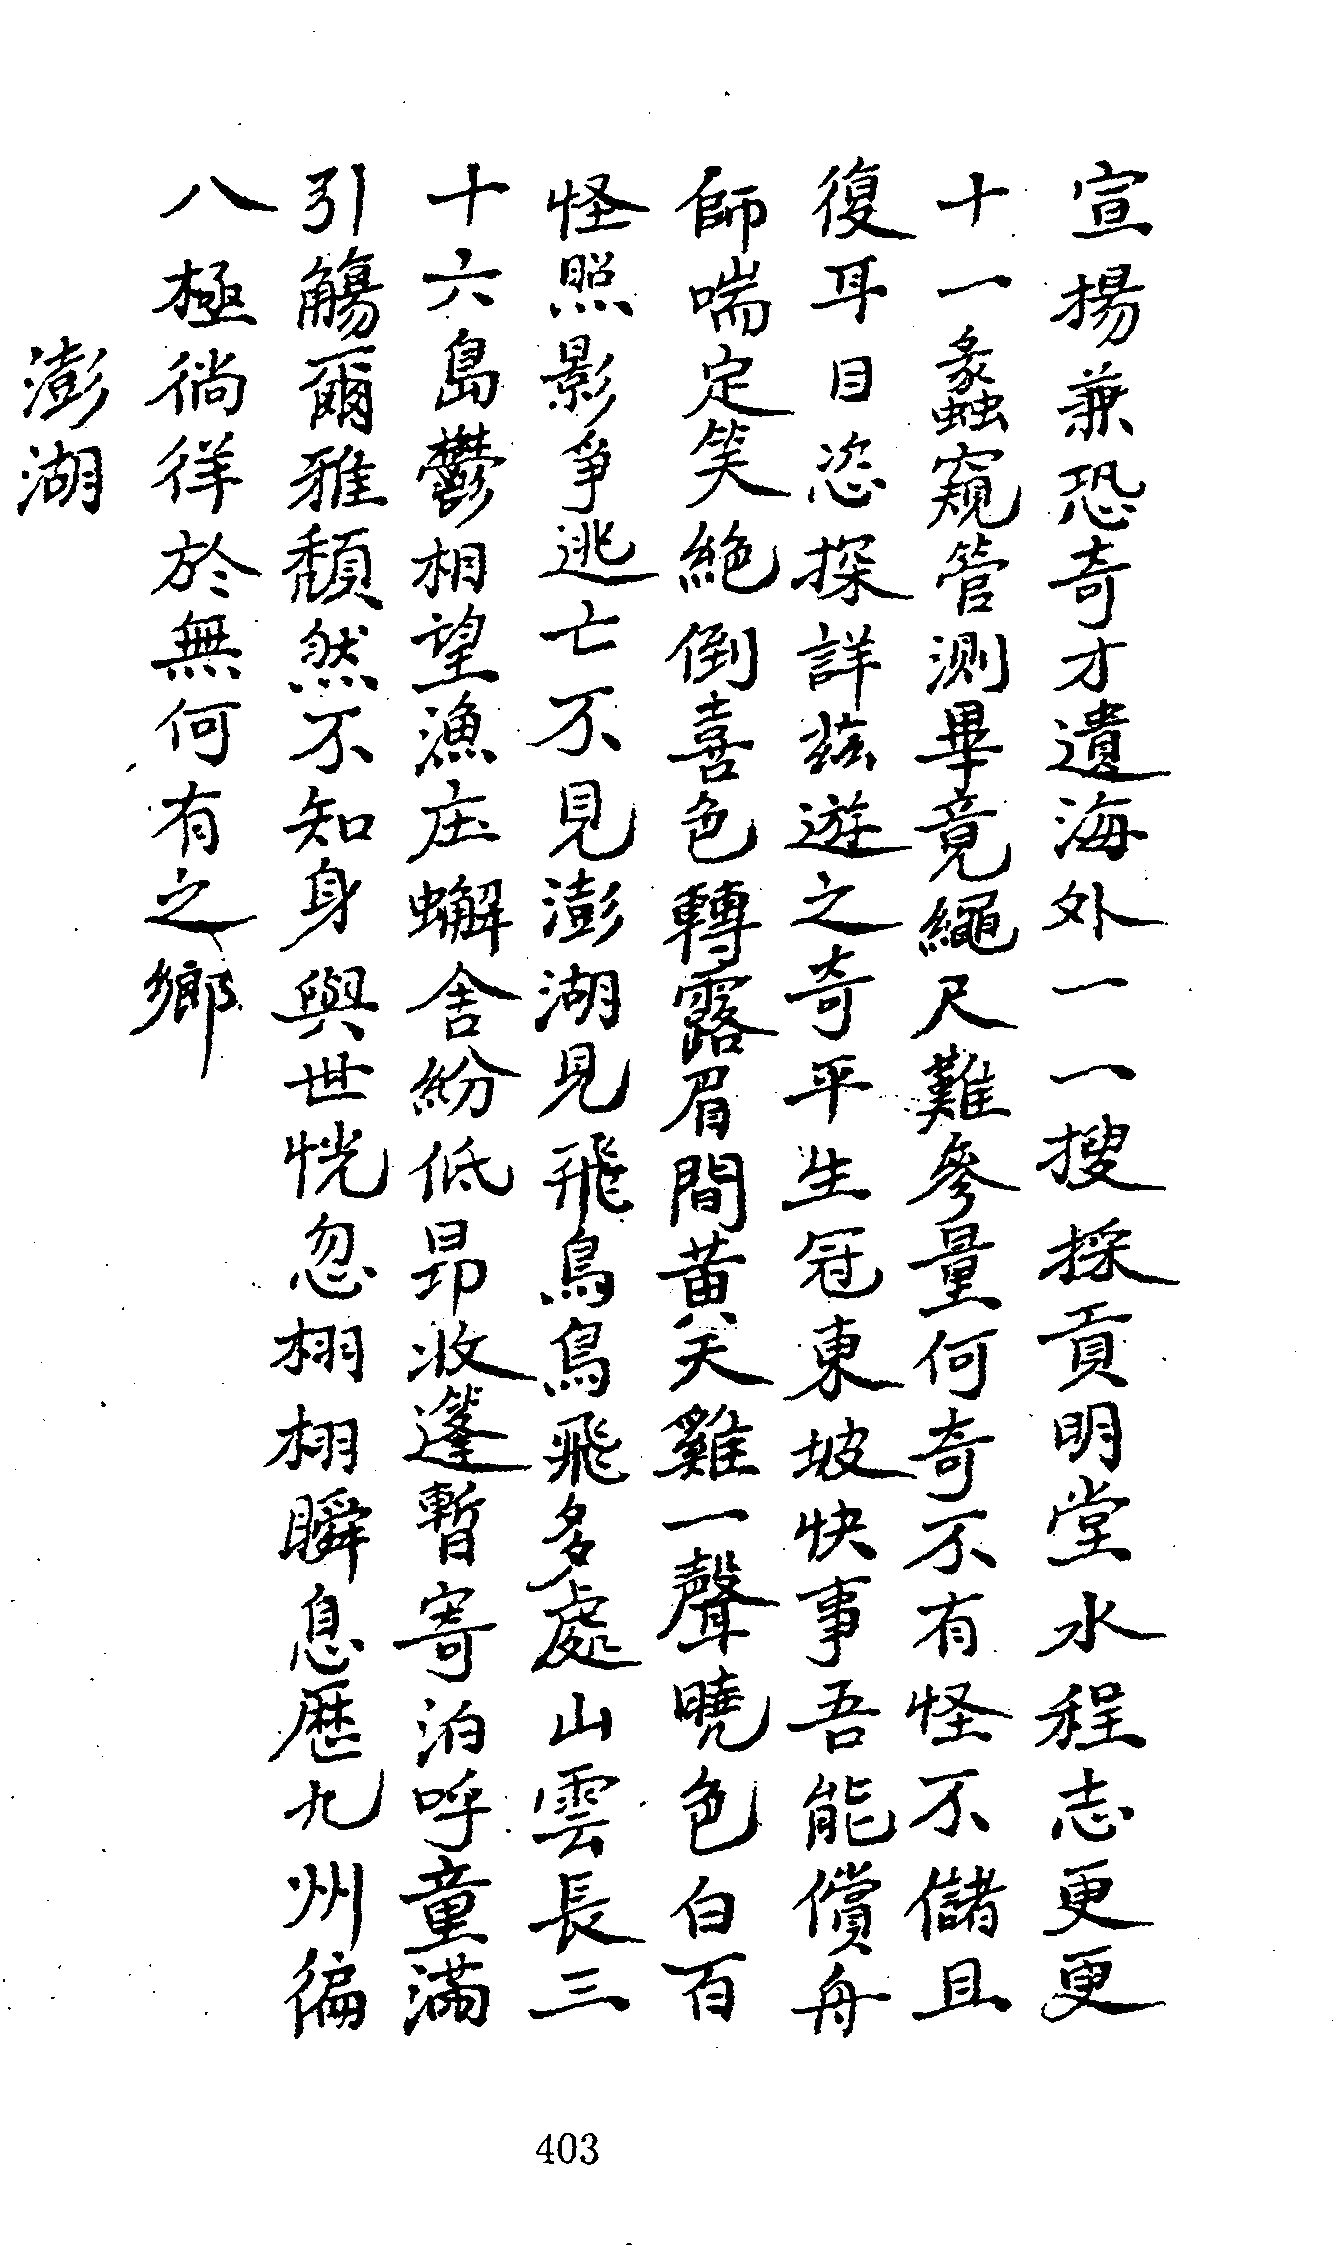 宣揚兼恐奇才遺海外一一搜採貢明堂水程志更更
十一蠡窺管測畢竟繩尺難參量何奇不有怪不儲且
復耳目恣探詳茲遊之奇平生冠東坡快事吾能償舟
師喘定笑絶倒喜色轉露眉間黄天雞一聲曉色白百
怪照影爭逃亡不見澎湖見飛鳥鳥飛多處山雲長三
十六島鬱相望漁庄蠏舍紛低昂收篷暫寄泊呼童滿
引觴爾雅頹然不知身與世恍忽栩栩瞬息歷九州徧
八極徜徉於無何有之鄉
澎湖
403